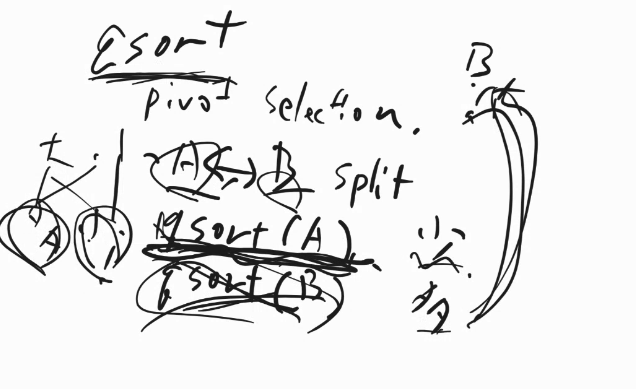 Qsort
pivot selection.
A ↔ B split
qsort(A)
qsort(B)
A
B